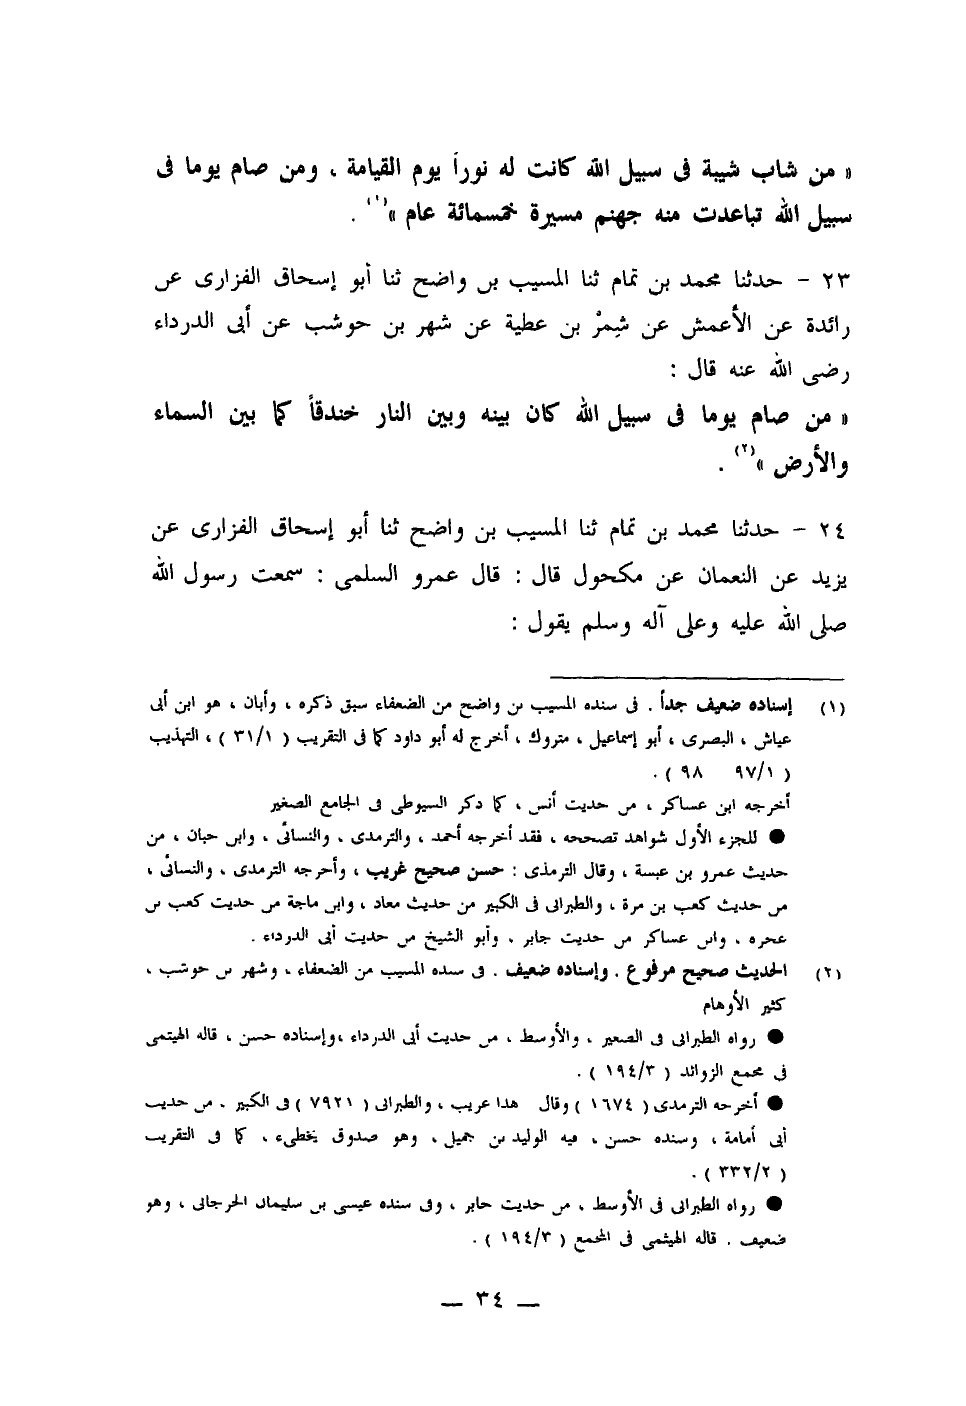 « من شاب شيبة فى سبيل الله كانت له نوراً يوم القيامة ، ومن صام يوما فى
سبيل الله تباعدت منه جهنم مسيرة خمسمائة عام »(١) .
٢٣ - حدثنا محمد بن تمام ثنا المسيب بن واضح ثنا أبو إسحاق الفزارى عن
رائدة عن الأعمش عن شِمرْ بن عطية عن شهر بن حوشب عن أبى الدرداء
رضى الله عنه قال :
« من صام يوما فى سبيل الله كان بينه وبين النار خندقاً كما بين السماء
والأرض »(٢) .
٢٤ - حدثنا محمد بن تمام ثنا المسيب بن واضح ثنا أبو إسحاق الفزارى عن
يزيد عن النعمان عن مكحول قال : قال عمرو السلمى : سمعت رسول الله
صلى الله عليه وعلى آله وسلم يقول :
(١) إسناده ضعيف جداً . فى سنده المسيب بن واضح من الضعفاء سبق ذكره ، وأبان ، هو ابن أبى
عياش ، البصرى ، أبو إسماعيل ، متروك ، أخرج له أبو داود كما فى التقريب ( ٣١/١ ) ، التهذيب
( ٩٧/١ ٩٨ ) .
أخرجه ابن عساكر ، من حديث أنس ، كما ذكر السيوطى فى الجامع الصغير
● للجزء الأول شواهد تصححه ، فقد أخرجه أحمد ، والترمدى ، والنسائى ، وابن حبان ، من
حديث عمرو بن عبسة ، وقال الترمذى : حسن صحيح غريب ، وأخرجه الترمدى ، والنسائى ،
من حديث كعب بن مرة ، والطبرانى فى الكبير من حديث معاد ، وابن ماجة من حديث كعب بن
عجره ، وابن عساكر من حديث جابر ، وأبو الشيخ من حديث أبى الدرداء .
(٢) الحديث صحيح مرفوع . وإسناده ضعيف . فى سنده المسيب من الضعفاء ، وشهر بن حوشب ،
كثير الأوهام
● رواه الطبرانى فى الصغير ، والأوسط ، من حديث أبى الدرداء ،وإسناده حسن ، قاله الهيتمى
فى مجمع الزوائد ( ١٩٤/٣ ) .
● أخرجه الترمدى ( ١٦٧٤ ) وقال هدا عريب ، والطبرانى ( ٧٩٢١ ) فى الكبير . من حديث
أبى أمامة ، وسنده حسن ، فيه الوليد بن جميل ، وهو صدوق يخطىء ، كما فى التقريب
( ٣٣٢/٢ ) .
● رواه الطبرانى فى الأوسط ، من حديث جابر ، وفى سنده عيسى بن سليمان الجرجانى ، وهو
ضعيف . قاله الهيثمى فى المجمع ( ١٩٤/٣ ) .
— ٣٤ —